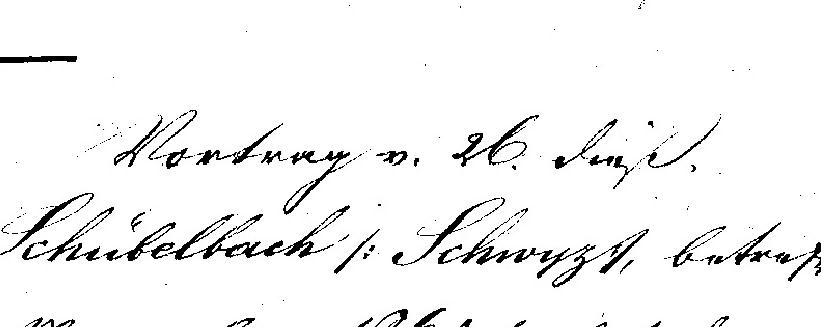 Vortrag v. 26. dieß.
Schübelbach /: Schwyz :/, betref